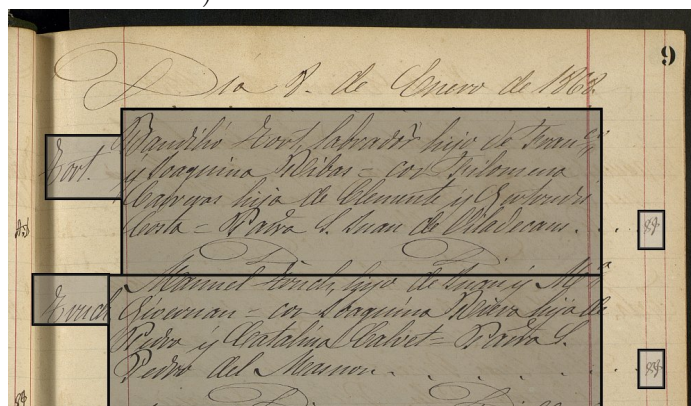 9
Dia 8. de Enero de 1868
Fort.
Baudilio Fort, labrador hijo de Franco
y Joaquina Ribas = con Filomena
Cabreras hija de Clemente y Gertrudis
Costa = Parra S. Juan de Viladecans.
Manuel Franch, hijo de Juan y Ma
= con Joaquina Riera hija de
Pedro y Catalina Calvet = Parra S.
Pedro del Masnou.